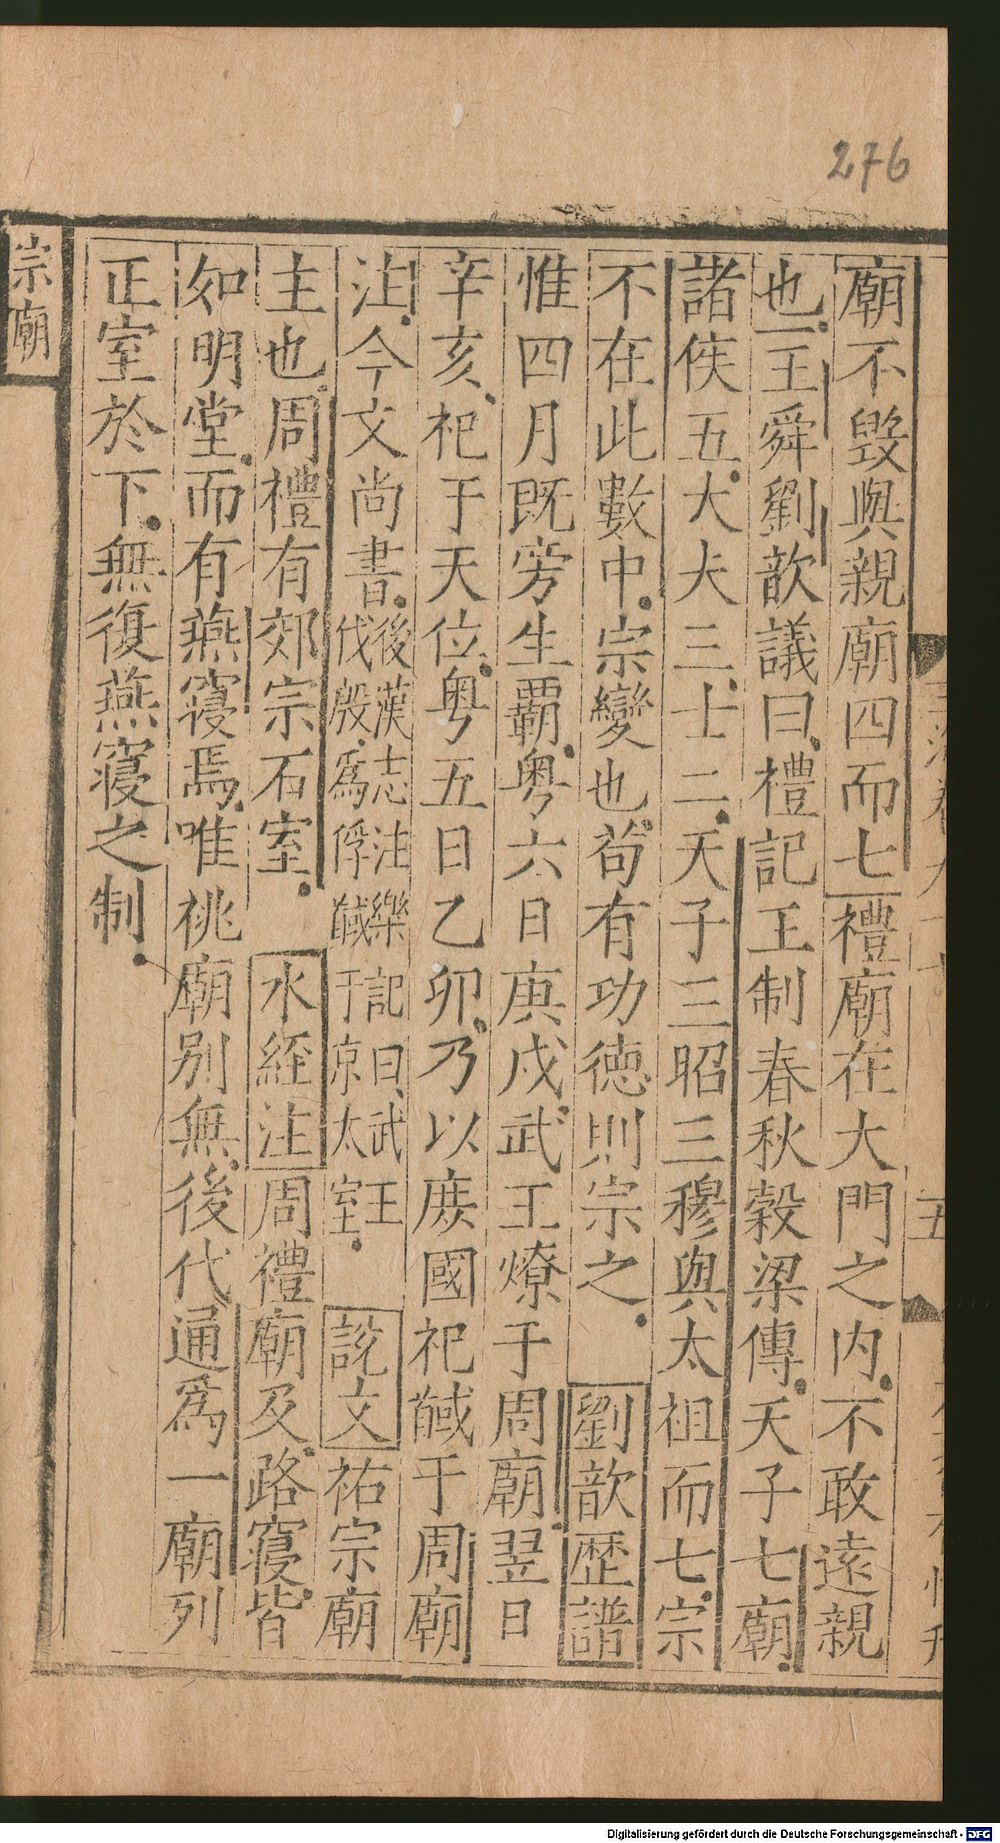 276
廟不毀與親廟四而七禮廟在大門之内不敢遠親
也王舜劉歆議曰禮記王制春秋穀梁傳天子七廟
諸侯五大夫三士二天子三昭三穆與太祖而七宗
不在此數中宗變也苟有功德則宗之劉歆歴譜
惟四月既旁生覇粤六日庚戌武王燎于周廟翌日
辛亥祀于天位粤五日乙卯乃以庻國祀馘于周廟
注今文尚書後漢志注樂記曰武王伐殷爲俘馘于京太室說文祐宗廟
主也周禮有郊宗石室水經注周禮廟及路寢皆
如明堂而有燕寢焉唯祧廟别無後代通爲一廟列
正室於下無復燕寢之制
宗廟
五
Digitalisierung gefördert durch die Deutsche Forschungsgemeinschaft - DFG